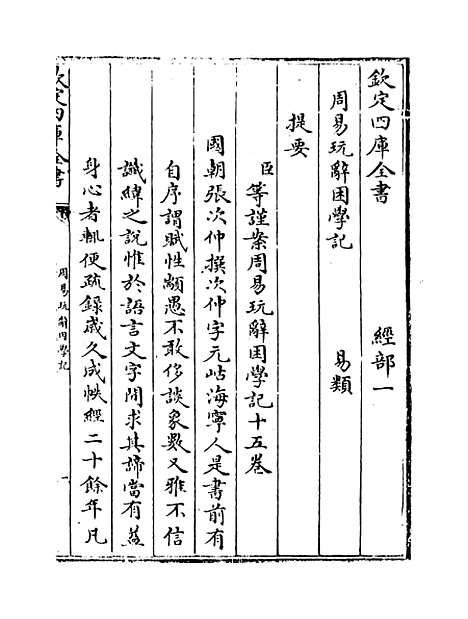 欽定四庫全書 經部一
周易玩辭困學記 易類
提要
臣等謹案周易玩辭困學記十五卷
國朝張次仲撰次仲字元岵海寧人是書前有
自序謂賦性顓愚不敢侈談象數又雅不信
讖緯之說惟於語言文字間求其諦當有益
身心者輒便疏錄歲久成帙經二十餘年凡
欽定四庫全書
周易玩辭困學記
一